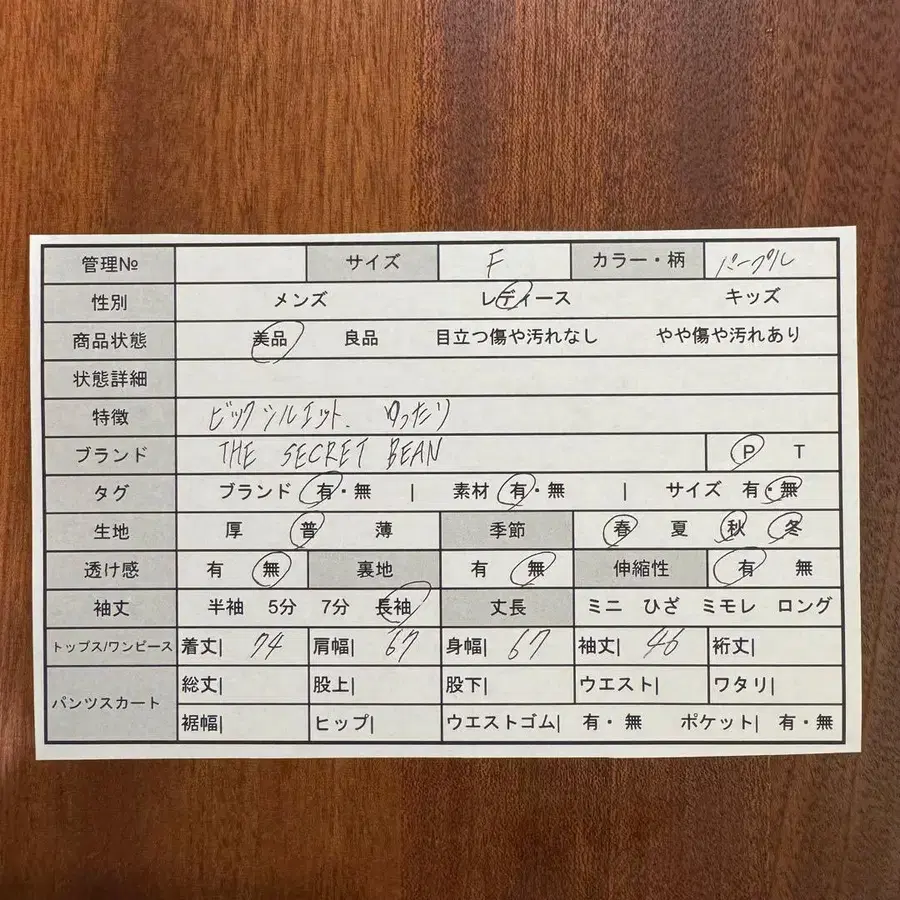 管理№ サイズ F カラー・柄 パープル
性別 メンズ レディース キッズ
商品状態 美品 良品 目立つ傷や汚れなし やや傷や汚れあり
状態詳細
特徴 ビックシルエット. ゆったり
ブランド THE SECRET BEAN P T
タグ ブランド 有・無 | 素材 有・無 | サイズ 有・無
生地 厚 普 薄 季節 春 夏 秋 冬
透け感 有 無 裏地 有 無 伸縮性 有 無
袖丈 半袖 5分 7分 長袖 丈長 ミニ ひざ ミモレ ロング
トップス/ワンピース 着丈| 74 肩幅| 67 身幅| 67 袖丈| 46 裄丈|
パンツスカート 総丈| 股上| 股下| ウエスト| ワタリ|
裾幅| ヒップ| ウエストゴム| 有・無 ポケット| 有・無